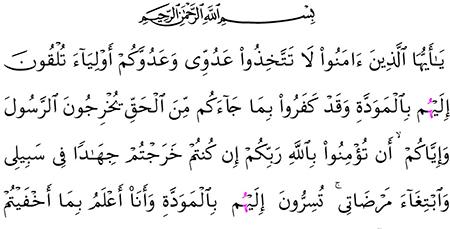 بِسْمِ ٱللَّهِ ٱلرَّحْمَٰنِ ٱلرَّحِيمِ
يَٰٓأَيُّهَا ٱلَّذِينَ ءَامَنُوا۟ لَا تَتَّخِذُوا۟ عَدُوِّى وَعَدُوَّكُمْ أَوْلِيَآءَ تُلْقُونَ
إِلَيْهُم بِٱلْمَوَدَّةِ وَقَدْ كَفَرُوا۟ بِمَا جَآءَكُم مِّنَ ٱلْحَقِّ يُخْرِجُونَ ٱلرَّسُولَ
وَإِيَّاكُمْ ۙ أَن تُؤْمِنُوا۟ بِٱللَّهِ رَبِّكُمْ إِن كُنتُمْ خَرَجْتُمْ جِهَٰدًا فِى سَبِيلِى
وَٱبْتِغَآءَ مَرْضَاتِى ۚ تُسِرُّونَ إِلَيْهُم بِٱلْمَوَدَّةِ وَأَنَا۠ أَعْلَمُ بِمَآ أَخْفَيْتُمْ